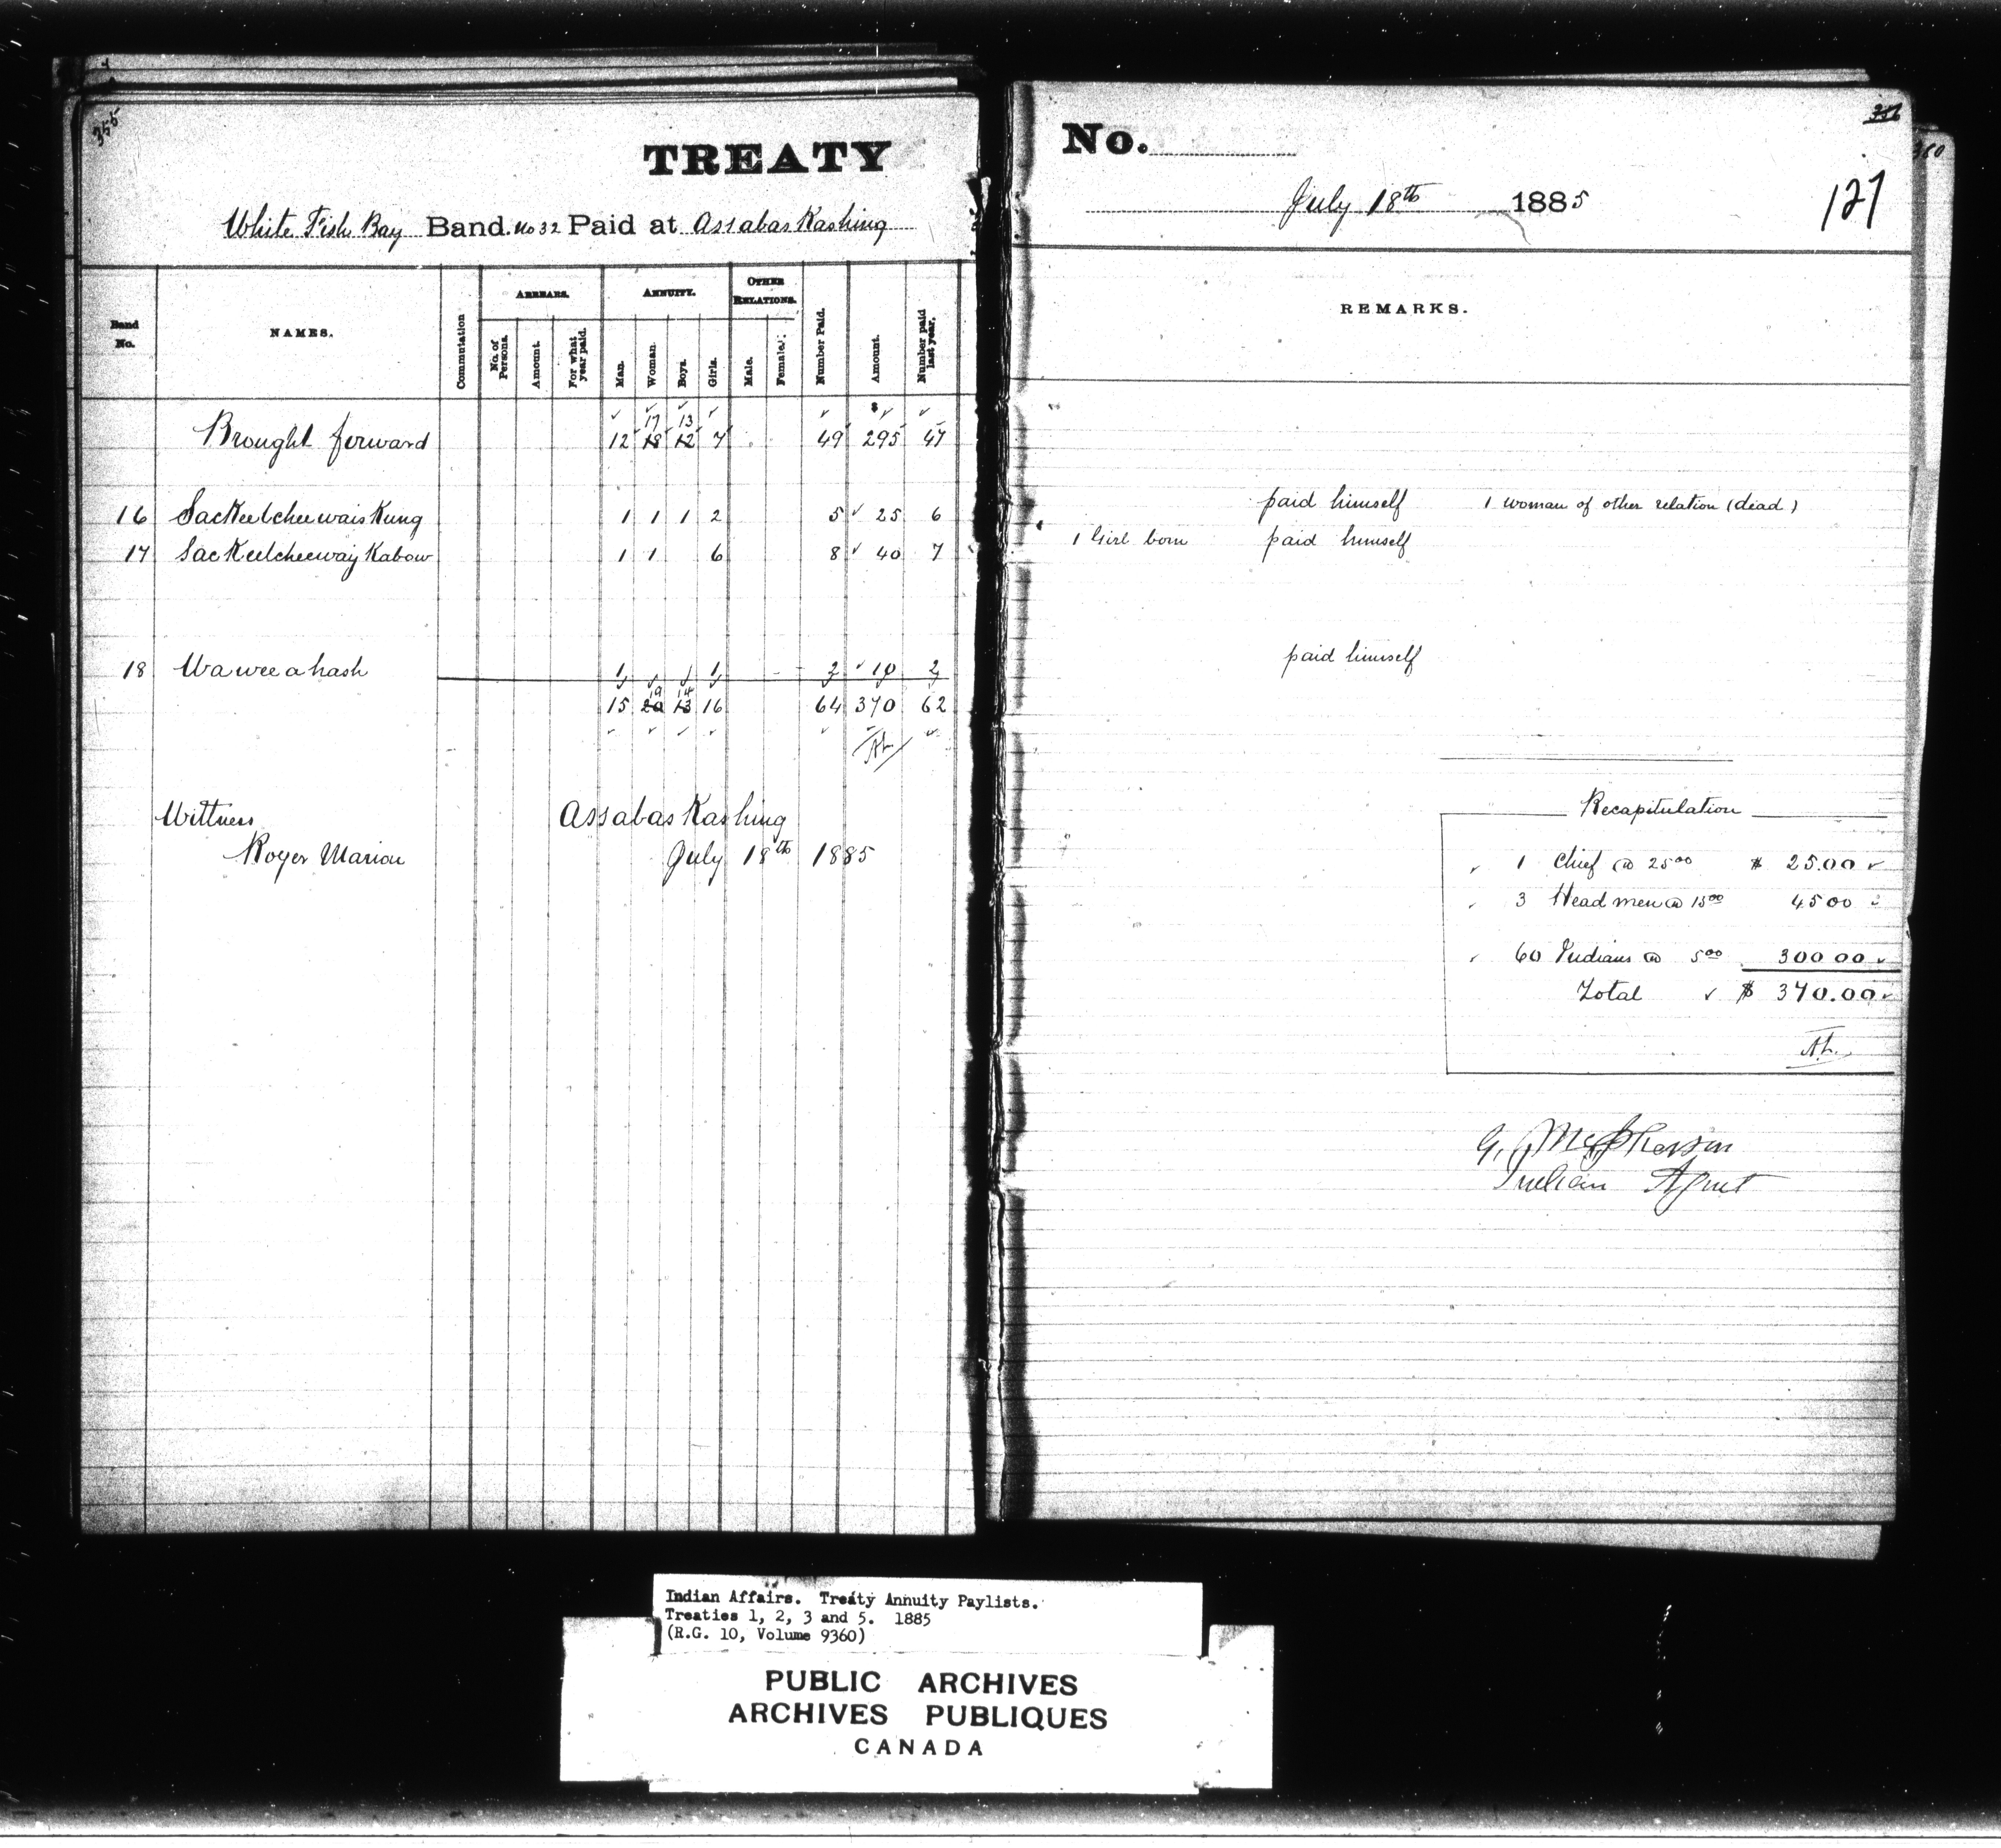 355
TREATY
White Fish Bay Band. No 32 Paid at Assabaskashing
Band No.
NAMES.
Commutation
ARREARS.
No. of Persons.
Amount.
For what year paid.
ANNUITY.
Man.
Woman.
Boys.
Girls.
OTHER RELATIONS.
Male.
Female.
Number Paid.
Amount.
Number paid last year.
17 13 $
Brought forward 12 18 12 7 49 295 47
16 Sackeetcheewaiskung 1 1 1 2 5 25 6
17 Sackeetcheewaykabow 1 1 6 8 40 7
18 Waweeahash 1 1 2 10 2
19 14
15 20 13 16 64 370 62
Wittness Assabaskashing
Roger Marion July 18th 1885
No.
356
360
July 18th 1885
121
REMARKS.
paid himself 1 woman of other relation (dead)
1 Girl born paid himself
paid himself
Recapitulation
1 Chief @ 25.00 $ 25.00
3 Head men @ 15.00 45 00
60 Indians @ 5.00 300 00
Total $ 370.00
G. McPherson
Indian Agent
Indian Affairs. Treaty Annuity Paylists.
Treaties 1, 2, 3 and 5. 1885
(R.G. 10, Volume 9360)
PUBLIC ARCHIVES
ARCHIVES PUBLIQUES
CANADA